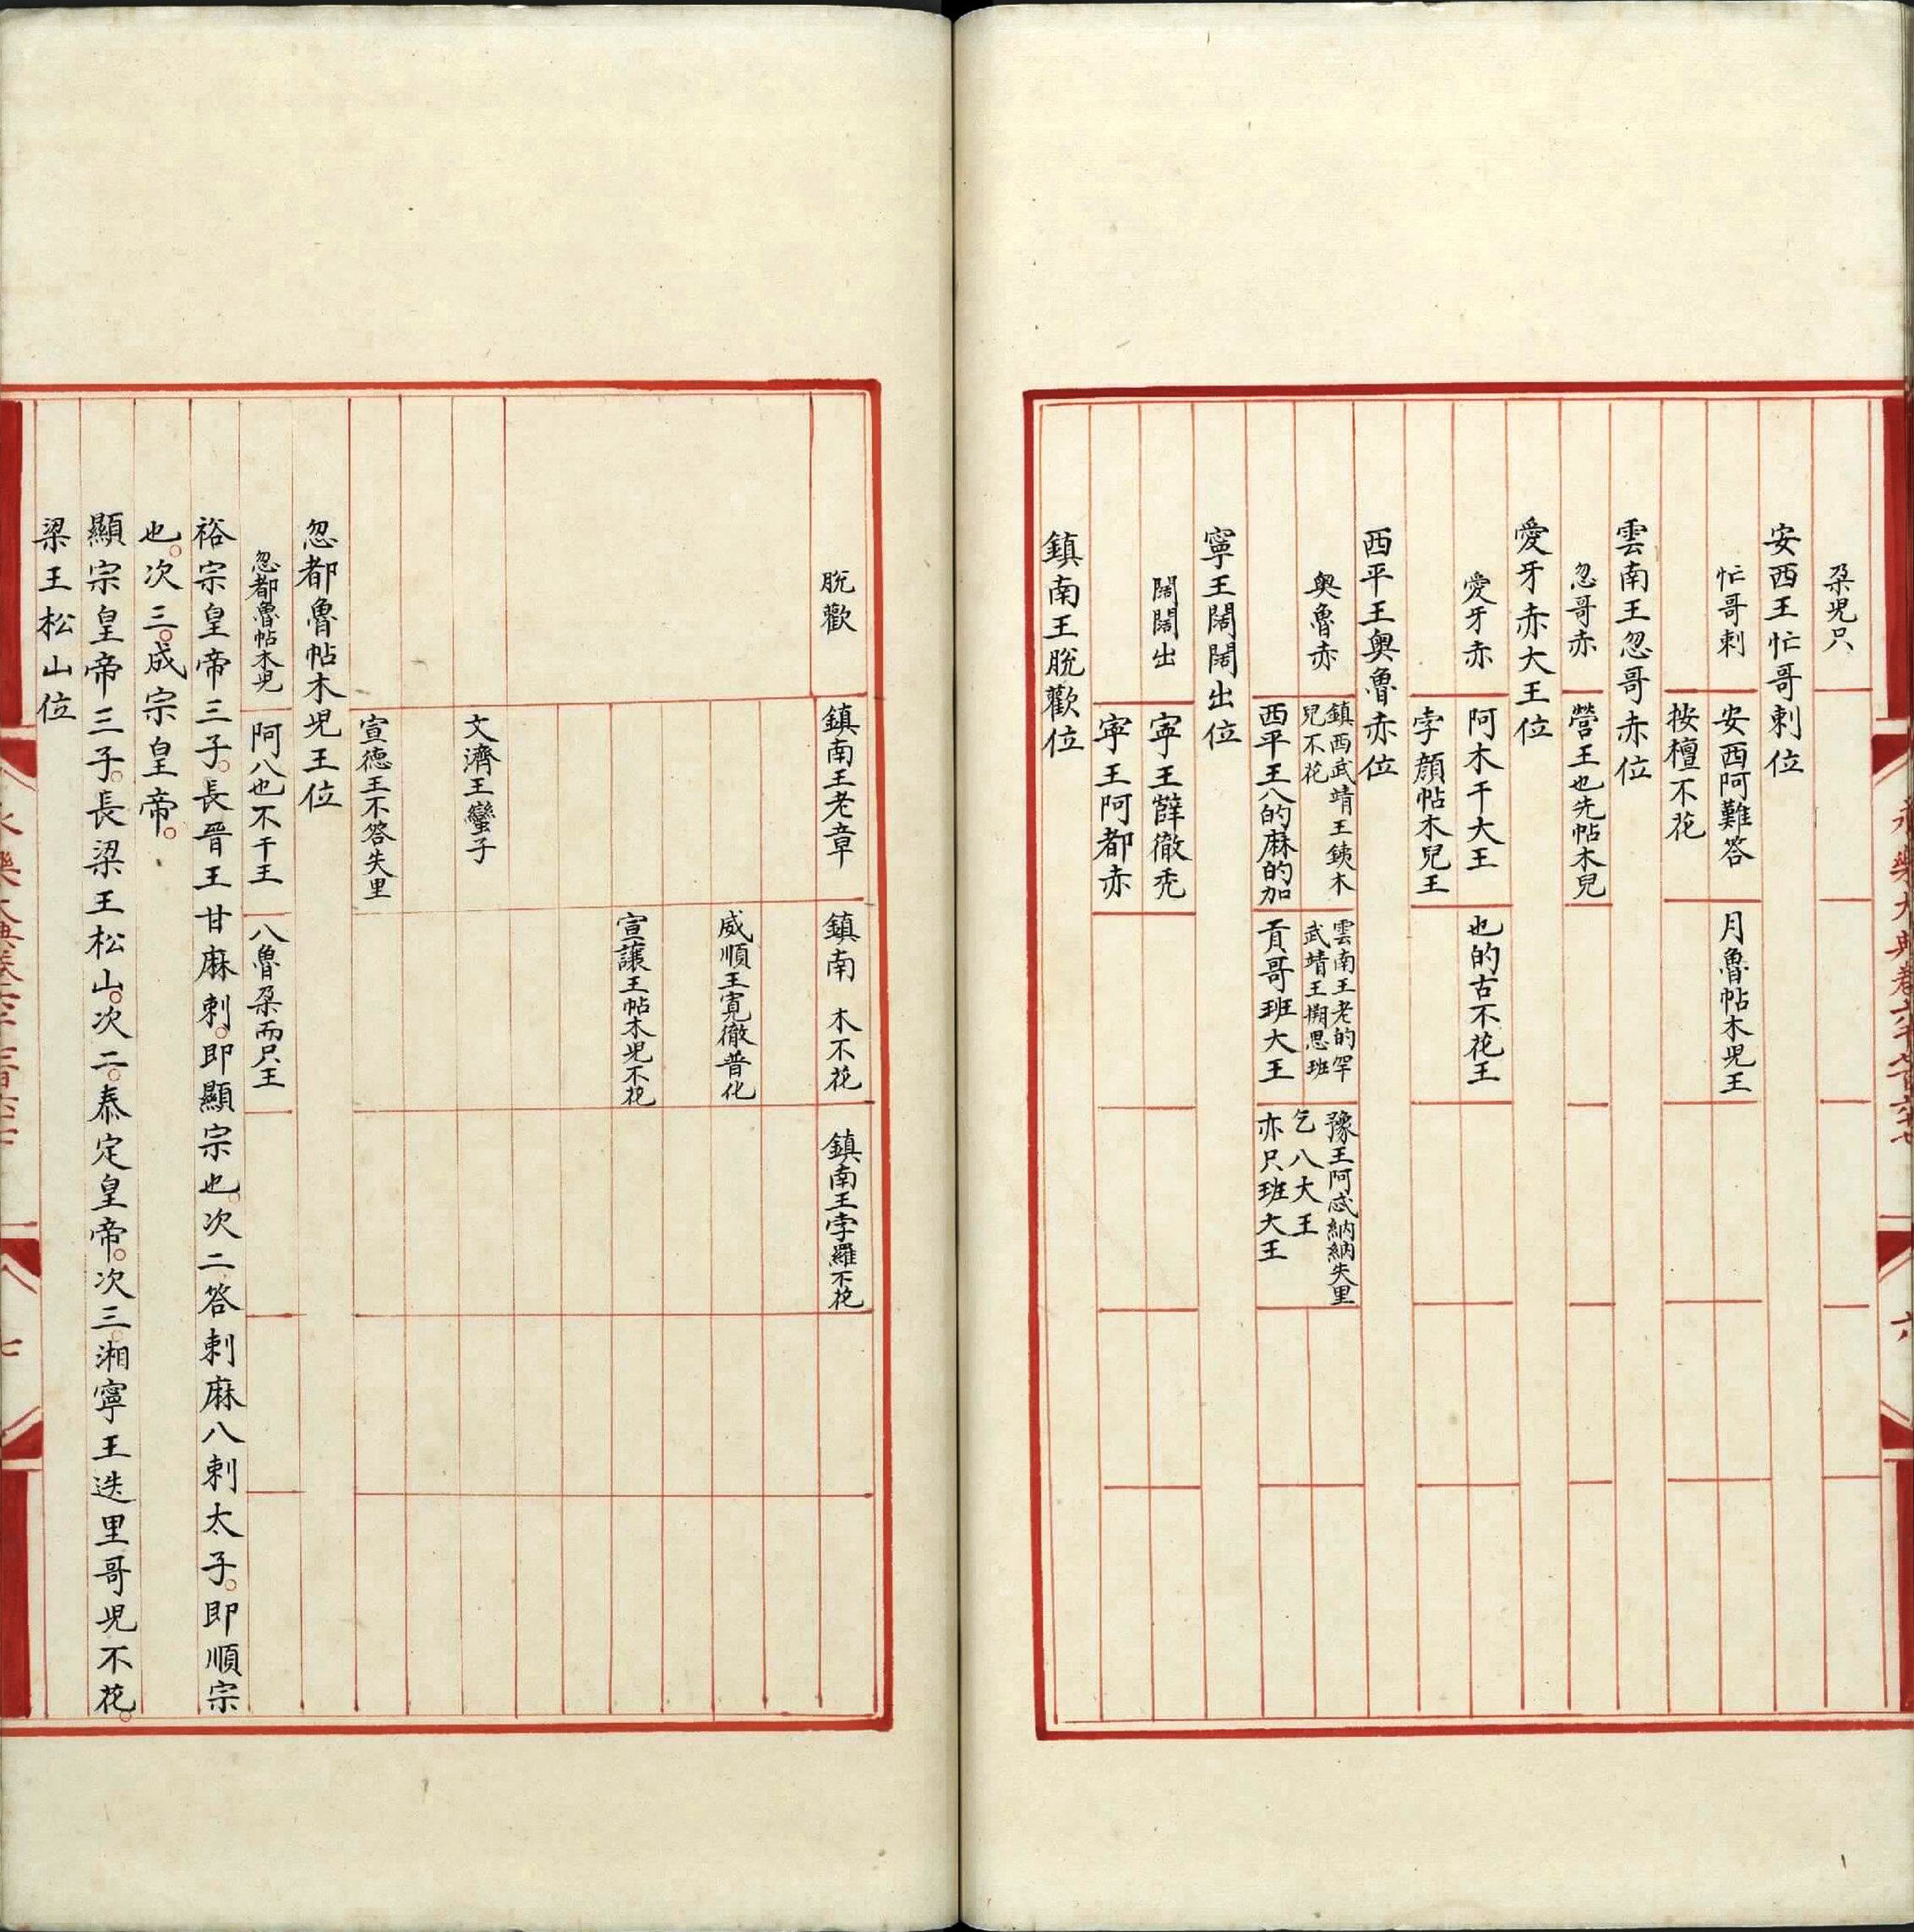 朶児只
安西王忙哥剌位
忙哥剌 安西阿難答 月魯帖木児王
按檀不花
雲南王忽哥赤位
忽哥赤 營王也先帖木兒
愛牙赤大王位
愛牙赤 阿木干大王 也的古不花王
孛顔帖木兒王
西平王奥魯赤位
奥魯赤 鎮西武靖王銕木兒不花 雲南王老的罕 武靖王搠思班 豫王阿忒納納失里 乞八大王
西平王八的麻的加 貢哥班大王 亦只班大王
寧王闊闊出位
闊闊出 寧王薛徹禿
寧王阿都赤
鎮南王脫歡位
永樂大典卷六千七百六十七
六
脫歡 鎮南王老章 鎮南 木不花 鎮南王孛羅不花
威順王寛徹普化
宣讓王帖木児不花
文濟王蠻子
宣德王不答失里
忽都魯帖木児王位
忽都魯帖木児 阿八也不干王 八魯朶而只王
裕宗皇帝三子。長晉王甘麻剌。即顯宗也。次二答剌麻八剌太子。即順宗
也。次三。成宗皇帝。
顯宗皇帝三子。長梁王松山。次二。泰定皇帝。次三。湘寧王迭里哥児不花。
梁王松山位
七